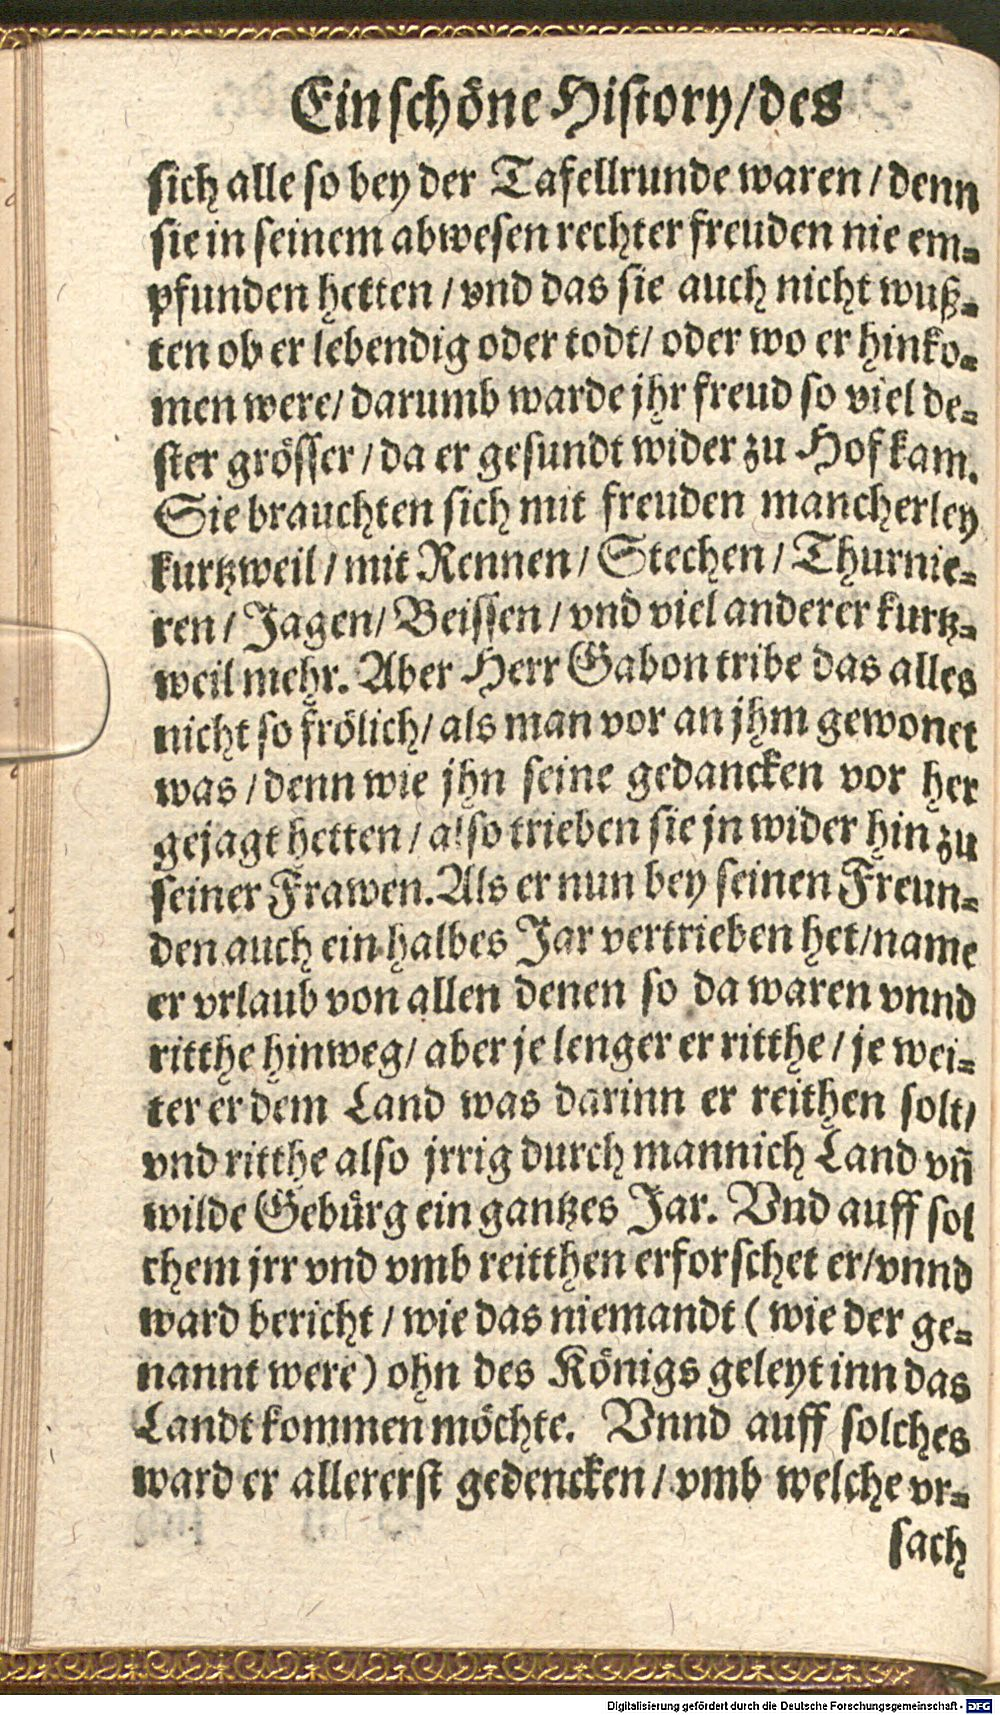 Ein schöne History/des
sich alle so bey der Tafellrunde waren / denn
sie in seinem abwesen rechter freuden nie em-
pfunden hetten / vnd das sie auch nicht wuß-
ten ob er lebendig oder todt/ oder wo er hinko-
men were/ darumb warde jhr freud so viel de-
ster grösser / da er gesundt wider zu Hof kam.
Sie brauchten sich mit freuden mancherley
kurtzweil / mit Rennen / Stechen / Thurnie-
ren / Jagen/ Beissen / vnd viel anderer kurtz-
weil mehr. Aber Herr Gabon tribe das alles
nicht so frölich/ als man vor an jhm gewonet
was / denn wie jhn seine gedancken vor her
gejagt hetten / also trieben sie jn wider hin zu
seiner Frawen. Als er nun bey seinen Freun-
den auch ein halbes Jar vertrieben het/name
er vrlaub von allen denen so da waren vnnd
ritthe hinweg/ aber je lenger er ritthe / je wei-
ter er dem Land was darinn er reithen solt/
vnd ritthe also jrrig durch mannich Land vñ
wilde Gebürg ein gantzes Jar. Vnd auff sol
chem jrr vnd vmb reitthen erforschet er/vnnd
ward bericht / wie das niemandt ( wie der ge-
nannt were ) ohn des Königs geleyt inn das
Landt kommen möchte. Vnnd auff solches
ward er allererst gedencken / vmb welche vr-
sach
Digitalisierung gefördert durch die Deutsche Forschungsgemeinschaft - DFG